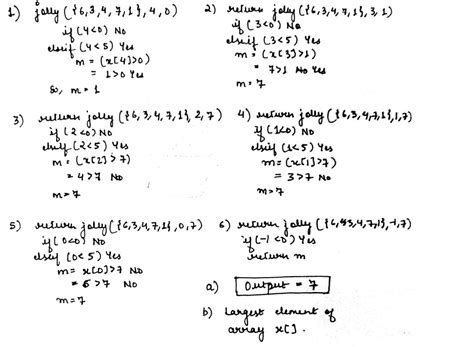 1) jolly ({6,3,4,7,1}, 4, 0)
if (4<0) No
elseif (4<5) Yes
m = (x[4]>0)
= 1>0 Yes
So, m = 1
2) return jolly ({6,3,4,7,1}, 3, 1)
if (3<0) No
elseif (3<5) Yes
m = (x[3]>1)
= 7>1 Yes
m = 7
3) return jolly ({6,3,4,7,1}, 2, 7)
if (2<0) No
elseif (2<5) Yes
m = (x[2]>7)
= 4>7 No
m = 7
4) return jolly ({6,3,4,7,1}, 1, 7)
if (1<0) No
elseif (1<5) Yes
m = (x[1]>7)
= 3>7 No
m = 7
5) return jolly ({6,3,4,7,1}, 0, 7)
if (0<0) No
elseif (0<5) Yes
m = x[0]>7 No
= 6>7 No
m = 7
6) return jolly ({6,3,4,7,1}, -1, 7)
if (-1<0) Yes
return m
a) Output = 7
b) Largest element of
array x[].